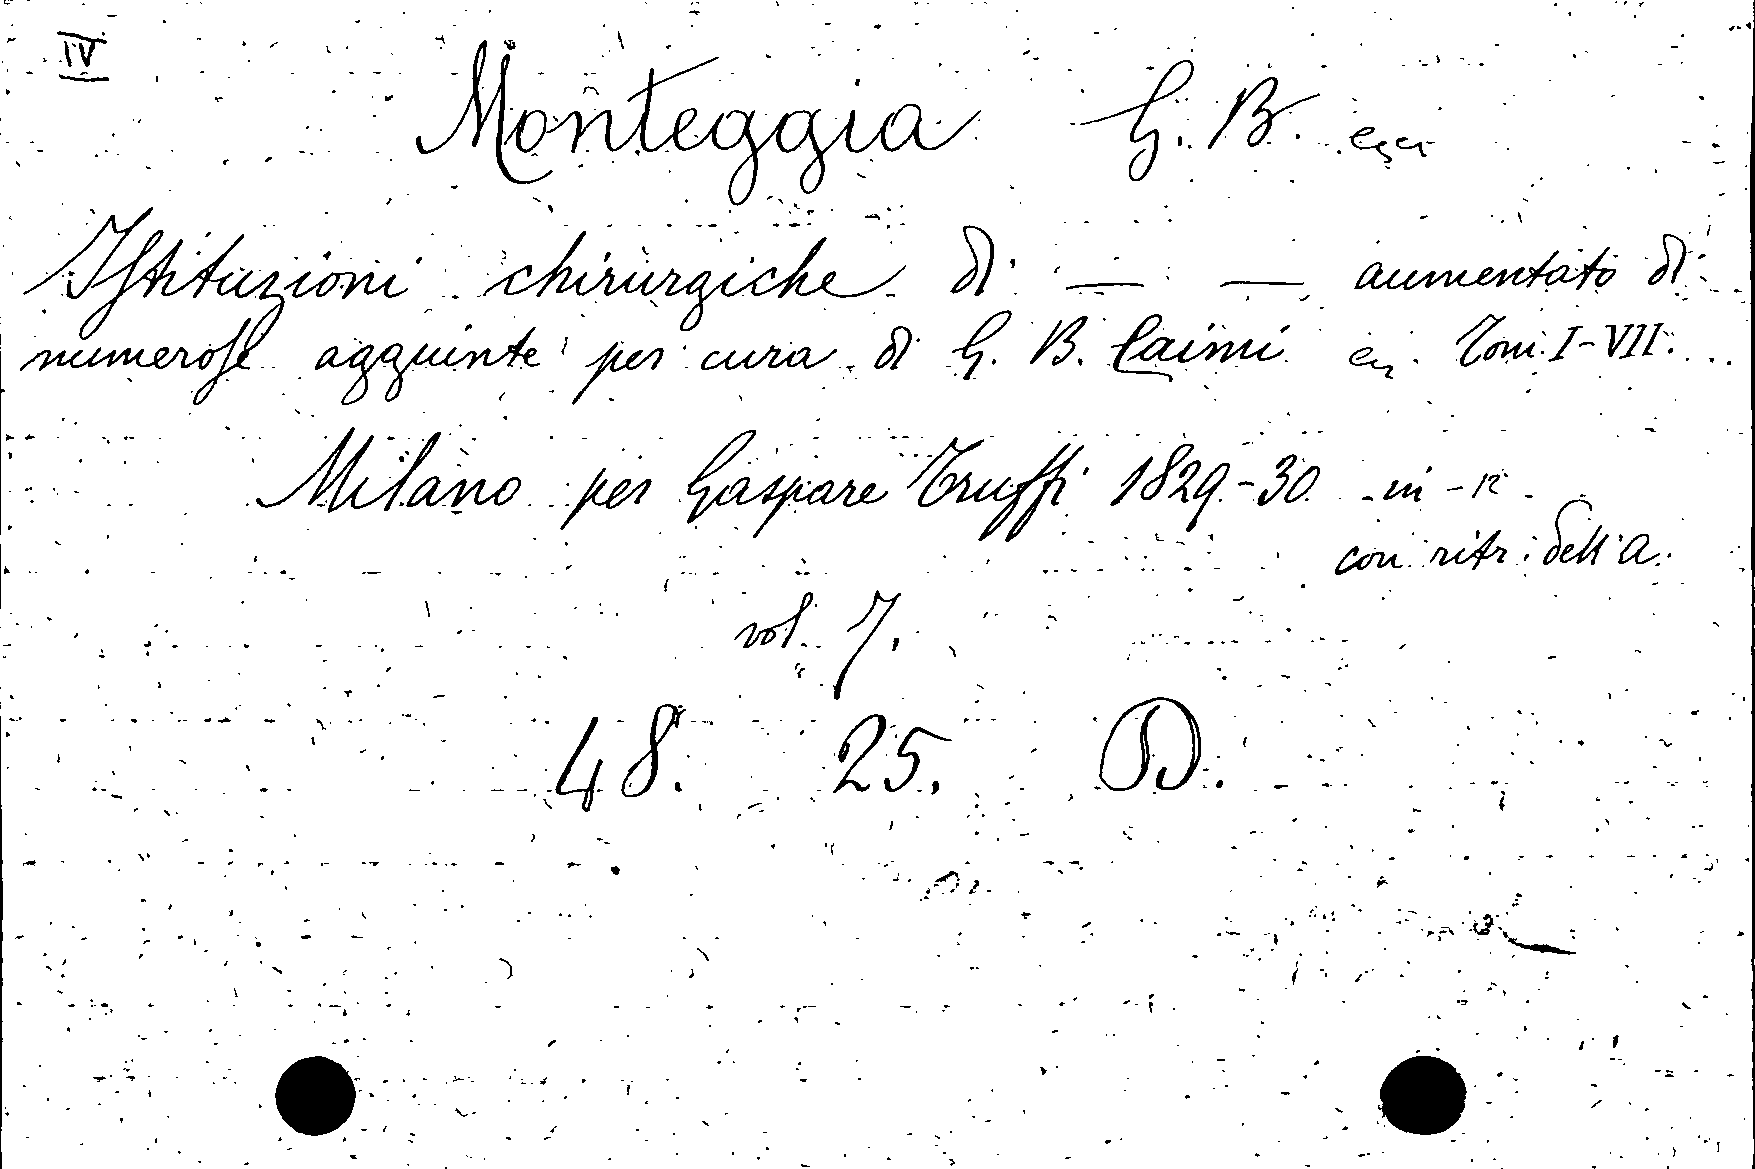 IV
Monteggia G. B.
Istituzioni chirurgiche di — — aumentato di
numerose aggiunte per cura di G. B. Caimi Tom. I-VII.
Milano per Gaspare Truffi 1829-30 in-12
con ritr. dell'A.
vol. 7.
48. 25. D.